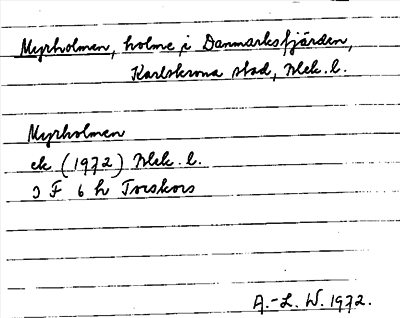 Myrholmen, holme i Danmarksfjärden,
Karlskrona stad, Blek. l.
Myrholmen
ek (1972) Blek. l.
3 F 6 h Torskors
A.-L. W. 1972.